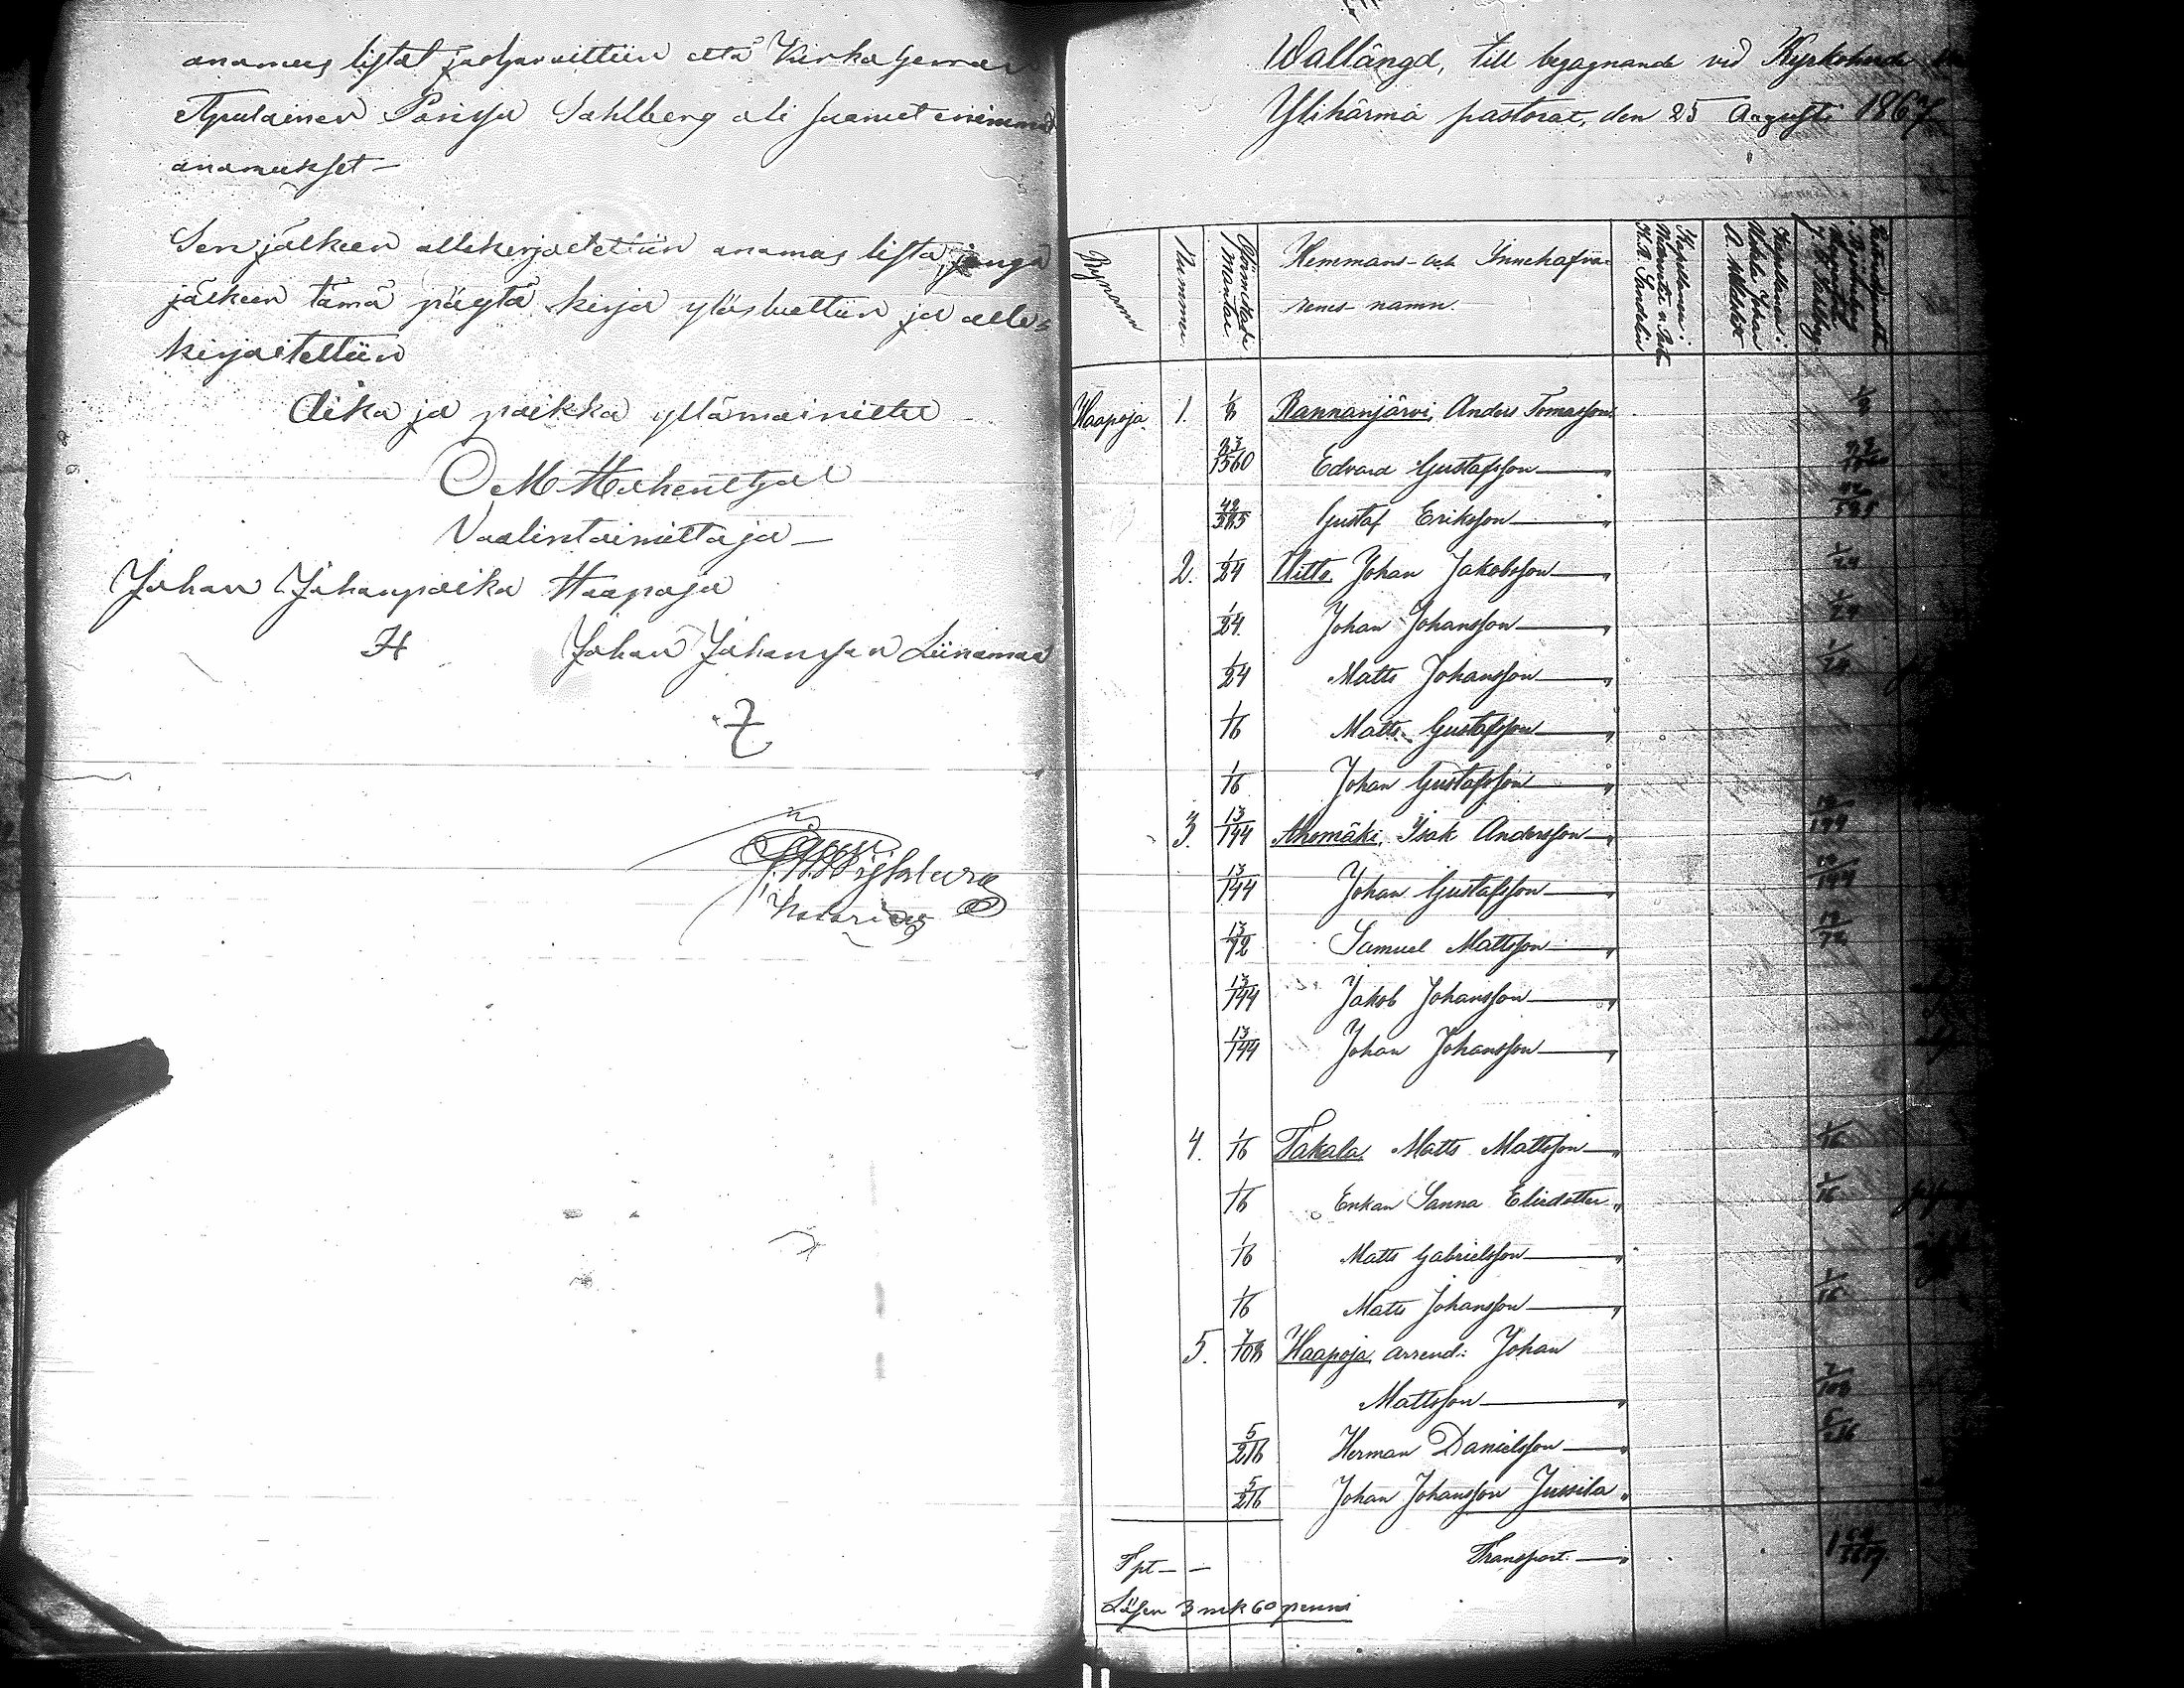 anamus listat ja havaittiin että Virkaheran
Apulainen Pastori Sahlberg oli saanut enimmät
anamukset —
Sen jälkeen allekirjoitettiin anamus lista, jonga
jälkeen tämä pöytä kirja ylösluettiin ja alle=
kirjoitettiin
Aika ja paikka yllämainittu
Vaalintoimittaja —
Johan Johanpoika Haapoja
Johan Johansson Liinamaa
Notarius
Wallängd, till begagnande vid Kyrkoherde
Ylihärmä pastorat, den 25 Augusti 1867
Bynamn
Nummer
Hemmans och Innehafva=
renes namn.
Haapoja 1. 1/8 Rannanjärvi, Anders Tomasson 1/8
33/1560 Edvard Gustafsson —„
42/585 Gustaf Eriksson —„ 42/585
2. 1/24 Uitto Johan Jakobsson —„ 1/24
1/24 Johan Johansson —„ 1/24
1/24 Matts Johansson —„ 1/24
1/16 Matts Gustafsson —„
1/16 Johan Gustafsson —„
3. 13/144 Ahomäki, Isak Andersson —„ 13/144
13/144 Johan Gustafsson —„ 13/144
13/72 Samuel Mattsson —„ 13/72
13/144 Jakob Johansson —„
13/144 Johan Johansson —„
4. 1/16 Takala Matts Mattsson —„ 1/16
1/16 Enkan Sanna Eliedotter „ 1/16
1/16 Matts Gabrielsson —„
1/16 Matts Johansson —„ 1/16
5. 7/108 Haapoja, arrend: Johan
Mattsson —„ 7/108
5/216 Herman Danielsson —„ 5/216
5/216 Johan Johansson Jussila „
Transport. —„
Lösen 3 mk 60 penni